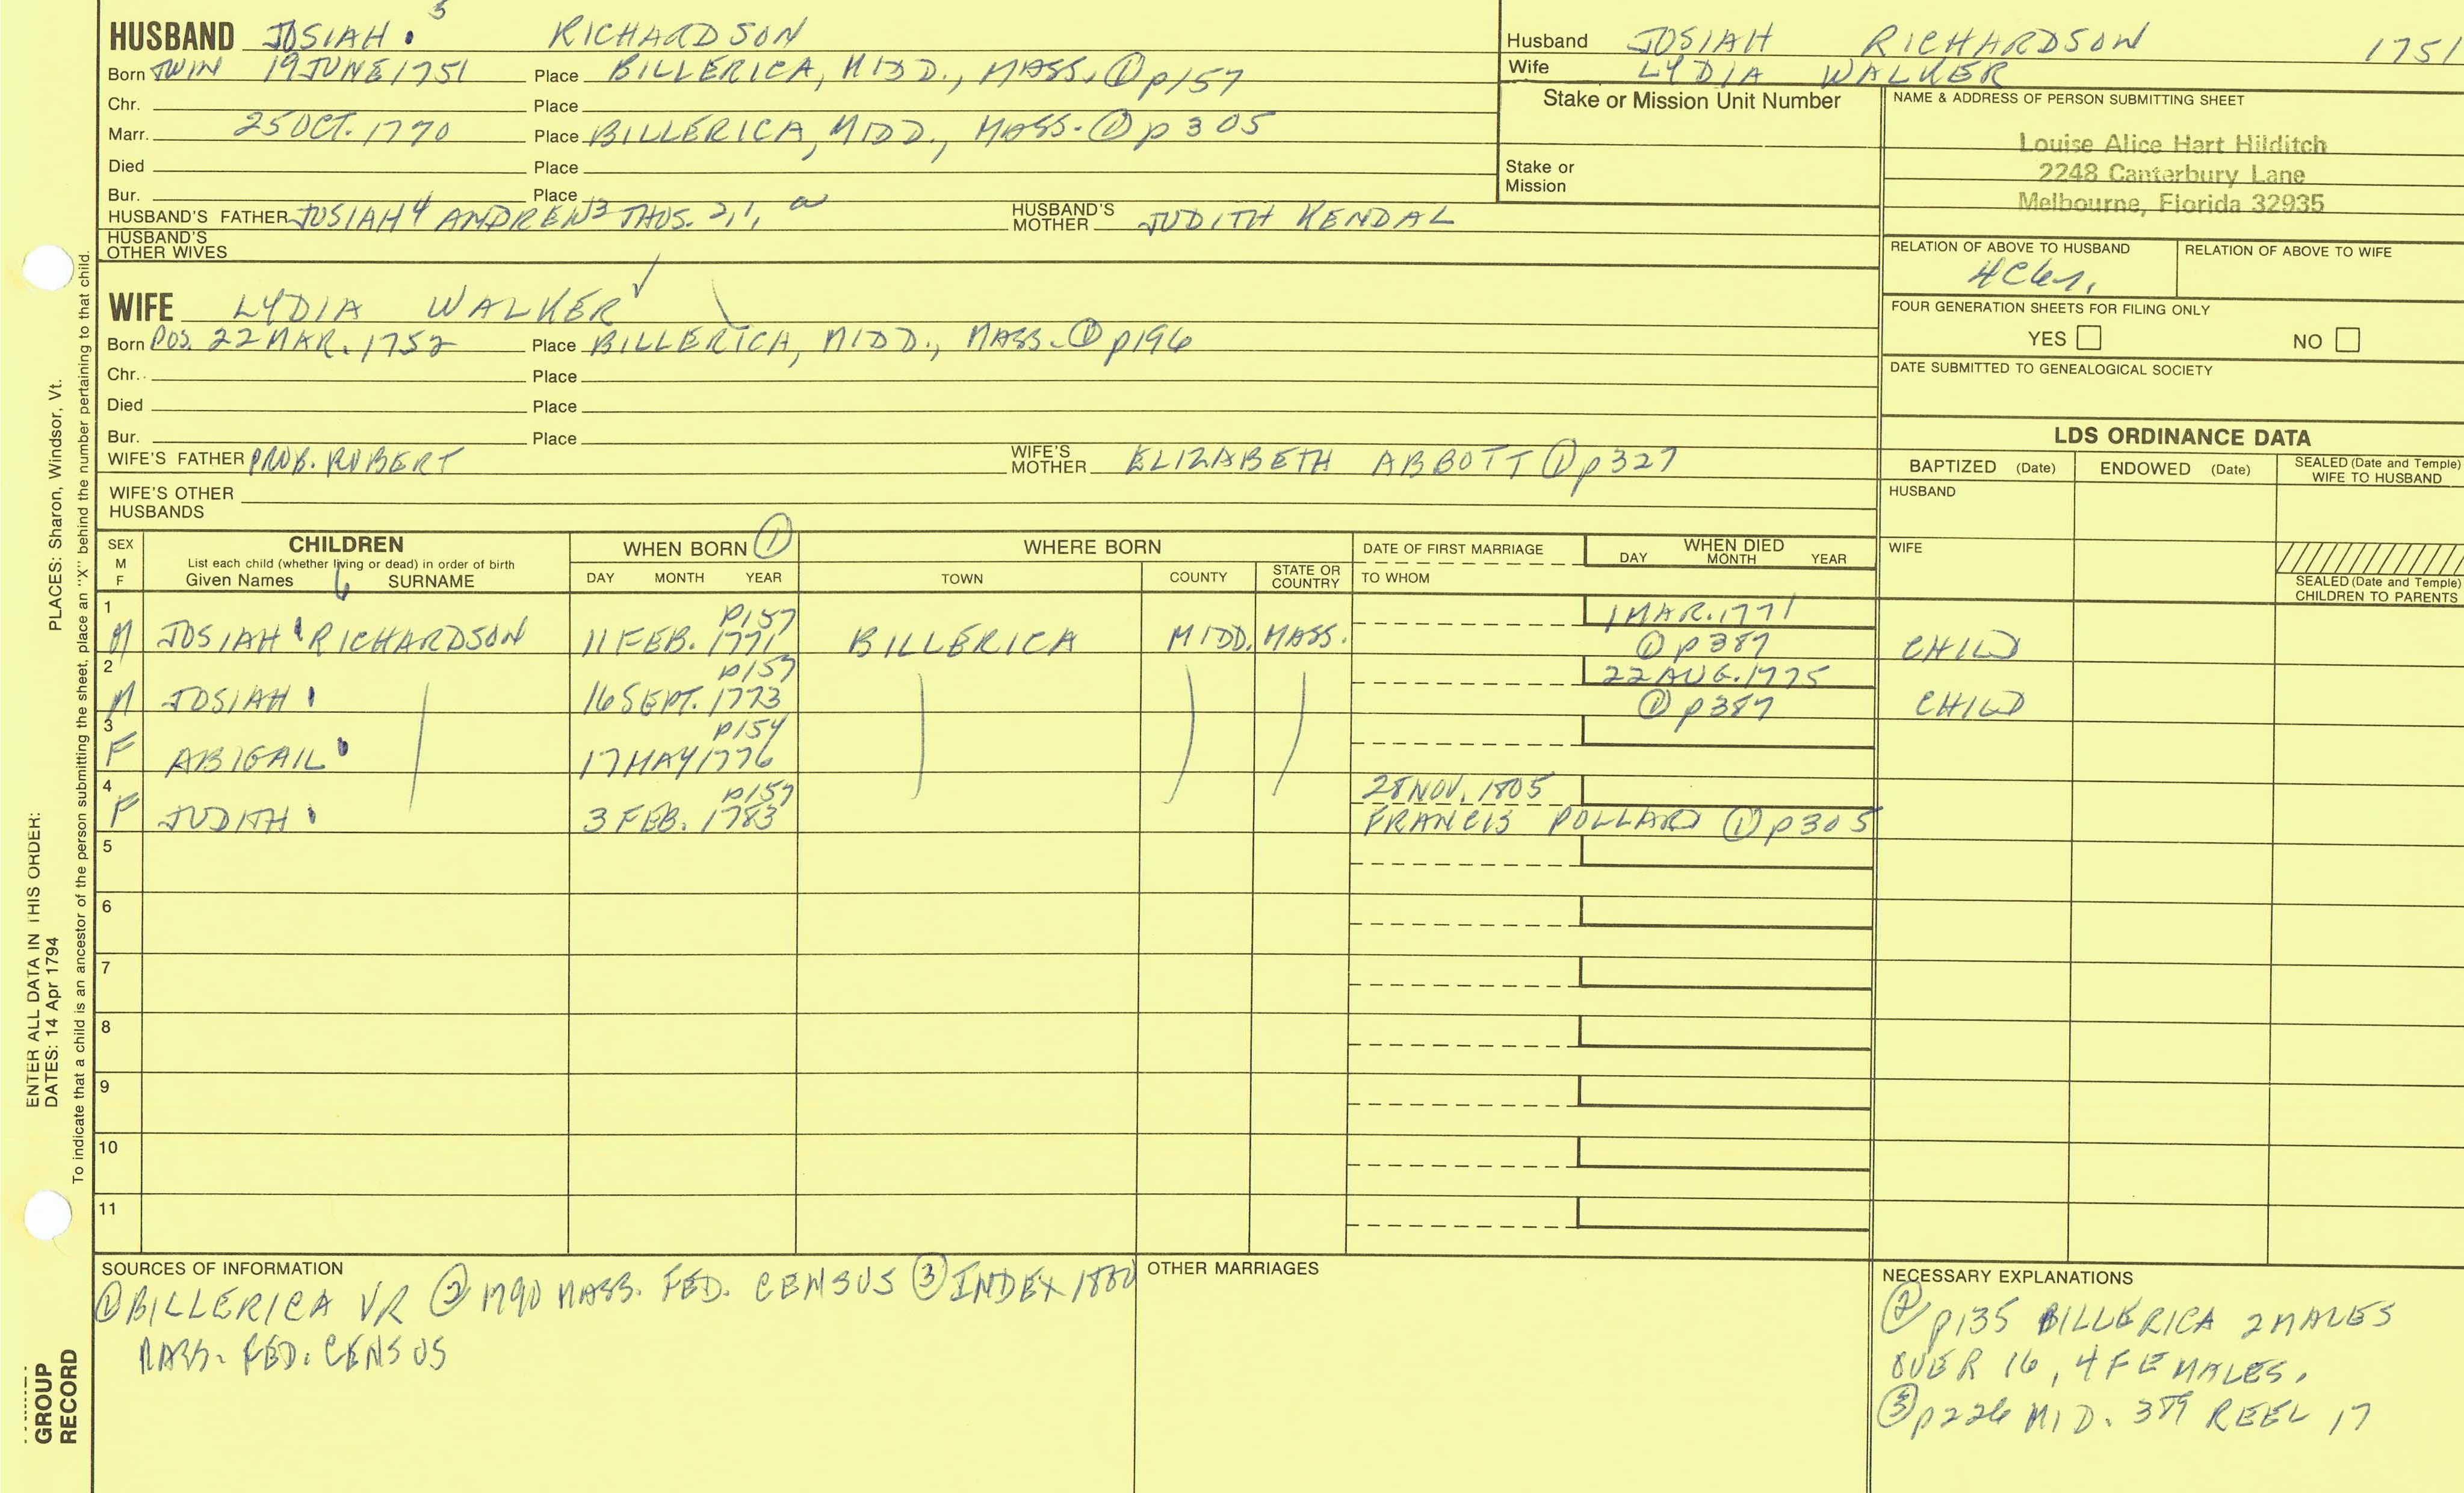 HUSBAND JOSIAH 5 RICHARDSON
Born TWIN 19 JUNE 1751 Place BILLERICA, MIDD., MASS. ① p157
Chr. Place
Marr. 25 OCT. 1770 Place BILLERICA, MIDD., MASS. ① p305
Died Place
Bur. Place
HUSBAND'S FATHER JOSIAH 4 ANDREW 3 THOS. 2,1,
HUSBAND'S MOTHER JUDITH KENDAL
HUSBAND'S OTHER WIVES
Husband JOSIAH RICHARDSON 1751
Wife LYDIA WALKER
Stake or Mission Unit Number
Stake or
Mission
NAME & ADDRESS OF PERSON SUBMITTING SHEET
Louise Alice Hart Hilditch
2248 Canterbury Lane
Melbourne, Florida 32935
RELATION OF ABOVE TO HUSBAND RELATION OF ABOVE TO WIFE
FOUR GENERATION SHEETS FOR FILING ONLY
YES NO
DATE SUBMITTED TO GENEALOGICAL SOCIETY
WIFE LYDIA WALKER ✓
Born POS. 22 MAR. 1752 Place BILLERICA, MIDD., MASS. ① p196
Chr. Place
Died Place
Bur. Place
WIFE'S FATHER PROB. ROBERT
WIFE'S MOTHER ELIZABETH ABBOTT ① p327
WIFE'S OTHER
HUSBANDS
LDS ORDINANCE DATA
BAPTIZED (Date) ENDOWED (Date) SEALED (Date and Temple)
WIFE TO HUSBAND
HUSBAND
WIFE
SEALED (Date and Temple)
CHILDREN TO PARENTS
SEX
M
F
CHILDREN
List each child (whether living or dead) in order of birth
Given Names 6 SURNAME
WHEN BORN ①
DAY MONTH YEAR
WHERE BORN
TOWN COUNTY STATE OR COUNTRY
DATE OF FIRST MARRIAGE
TO WHOM
WHEN DIED
DAY MONTH YEAR
1 p157 1 MAR. 1771
M JOSIAH RICHARDSON 11 FEB. 1771 BILLERICA MIDD. MASS. ① p387 CHILD
2 p157 22 AUG. 1775
M JOSIAH 16 SEPT. 1773 ① p387 CHILD
3 p154
F ABIGAIL 17 MAY 1776
4 p157 28 NOV. 1805
F JUDITH 3 FEB. 1783 FRANCIS POLLARD ① p305
5
6
7
8
9
10
11
SOURCES OF INFORMATION
① BILLERICA VR ② 1790 MASS. FED. CENSUS ③ INDEX 1800
MASS. FED. CENSUS
OTHER MARRIAGES
NECESSARY EXPLANATIONS
② p135 BILLERICA 2 MALES
OVER 16, 4 FEMALES.
③ p226 MID. 379 REEL 17
PLACES: Sharon, Windsor, Vt.
To indicate that a child is an ancestor of the person submitting the sheet, place an "X" behind the number pertaining to that child.
ENTER ALL DATA IN THIS ORDER:
DATES: 14 Apr 1794
GROUP
RECORD